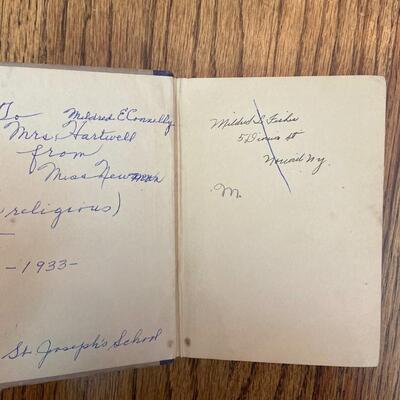 To Mildred E Connelly
Mrs Hartwell
from
Miss Newman
religious)
-1933-
St Joseph's School
Mildred L Fisher
5 St
Norwich Ny.
M.